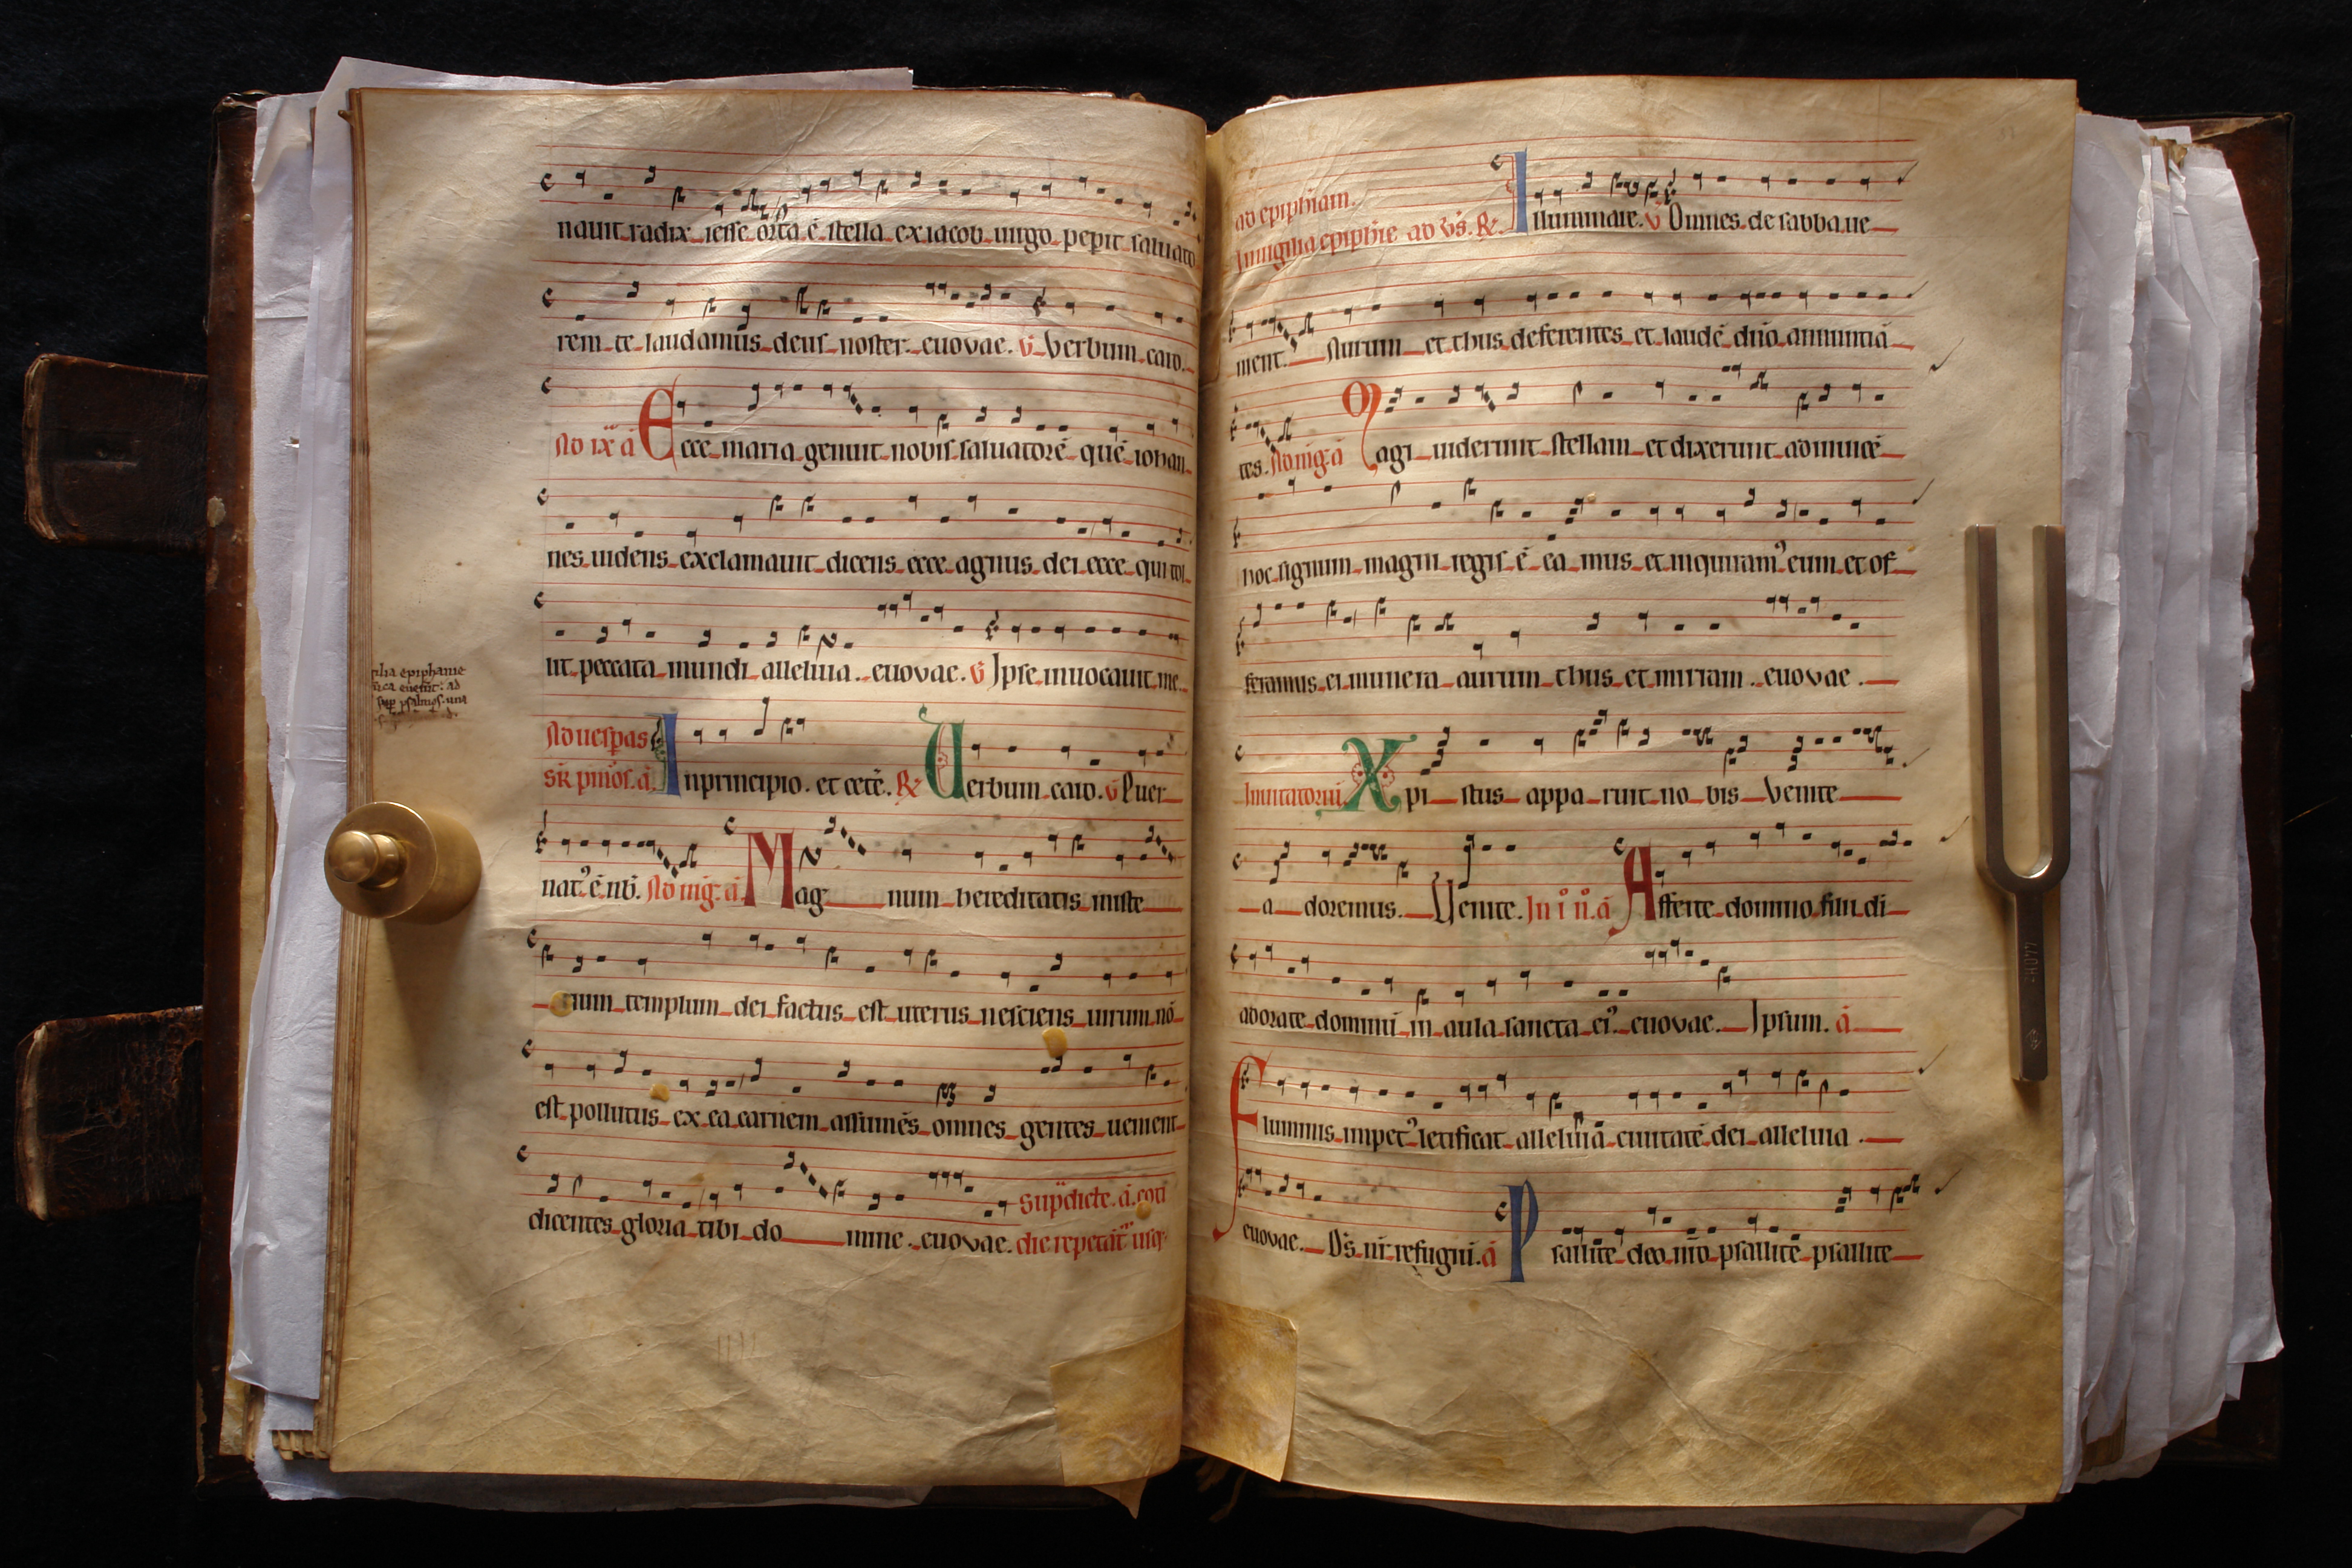 nauit radix iesse orta ē stella ex iacob uirgo pepit saluato
rem te laudamus deus noster. euovae. v̄ Verbum caro.
Ad ix ā Ecce maria genuit nobis saluatorē quē iohan
nes uidens exclamauit dicens ecce agnus dei ecce qui tol
lit peccata mundi alleluia. euovae. v̄ Ipse inuocauit me
Ad uesperas In principio. et cetē. R Verbum caro. v̄ Puer
sr̄ pmōs. ā.
natꝰ ē nb̄. Ad mḡ. ā. Mag num hereditatis miste
rium templum dei factus est uterus nesciens uirum nō
est pollutus ex ea carnem assumēs omnes gentes uenient
dicentes gloria tibi do mine. euovae.
sup̄dicte. ā. coti
die repetāt usq
ilia epiphanie
ad
sup psalmos una
ad epiphiam.
In uigilia epiphie ad vs̄. R. Illuminare. v̄ Omnes de sabba ue
nient. Aurum et thus deferentes et laudē dn̄o annuntiā
tes. Ad mḡ. ā Magi uiderunt stellam et dixerunt adinuicē
hoc signum magni regis ē ea mus et inquiramꝰ eum et of
feramus ei munera aurum thus et mirram. euovae.
Inuitatoriū Xpi stus appa ruit no bis Venite
a doremus. Venite. In i n̄. ā Afferte domino filii di
adorate dominū in aula sancta eiꝰ. euovae. Ipsum. ā
Fluminis impetꝰ letificat alleluiā ciuitatē dei alleluia.
euovae. Ds̄ nr̄ refugiū. ā Psallite deo nr̄o psallitē psallite